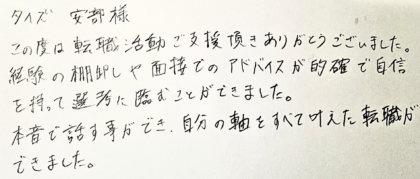 タイズ 安部様
この度は転職活動ご支援頂きありがとうございました。
経験の棚卸しや面接でのアドバイスが的確で自信
を持って選考に臨むことができました。
本音で話す事ができ、自分の軸をすべて叶えた転職が
できました。